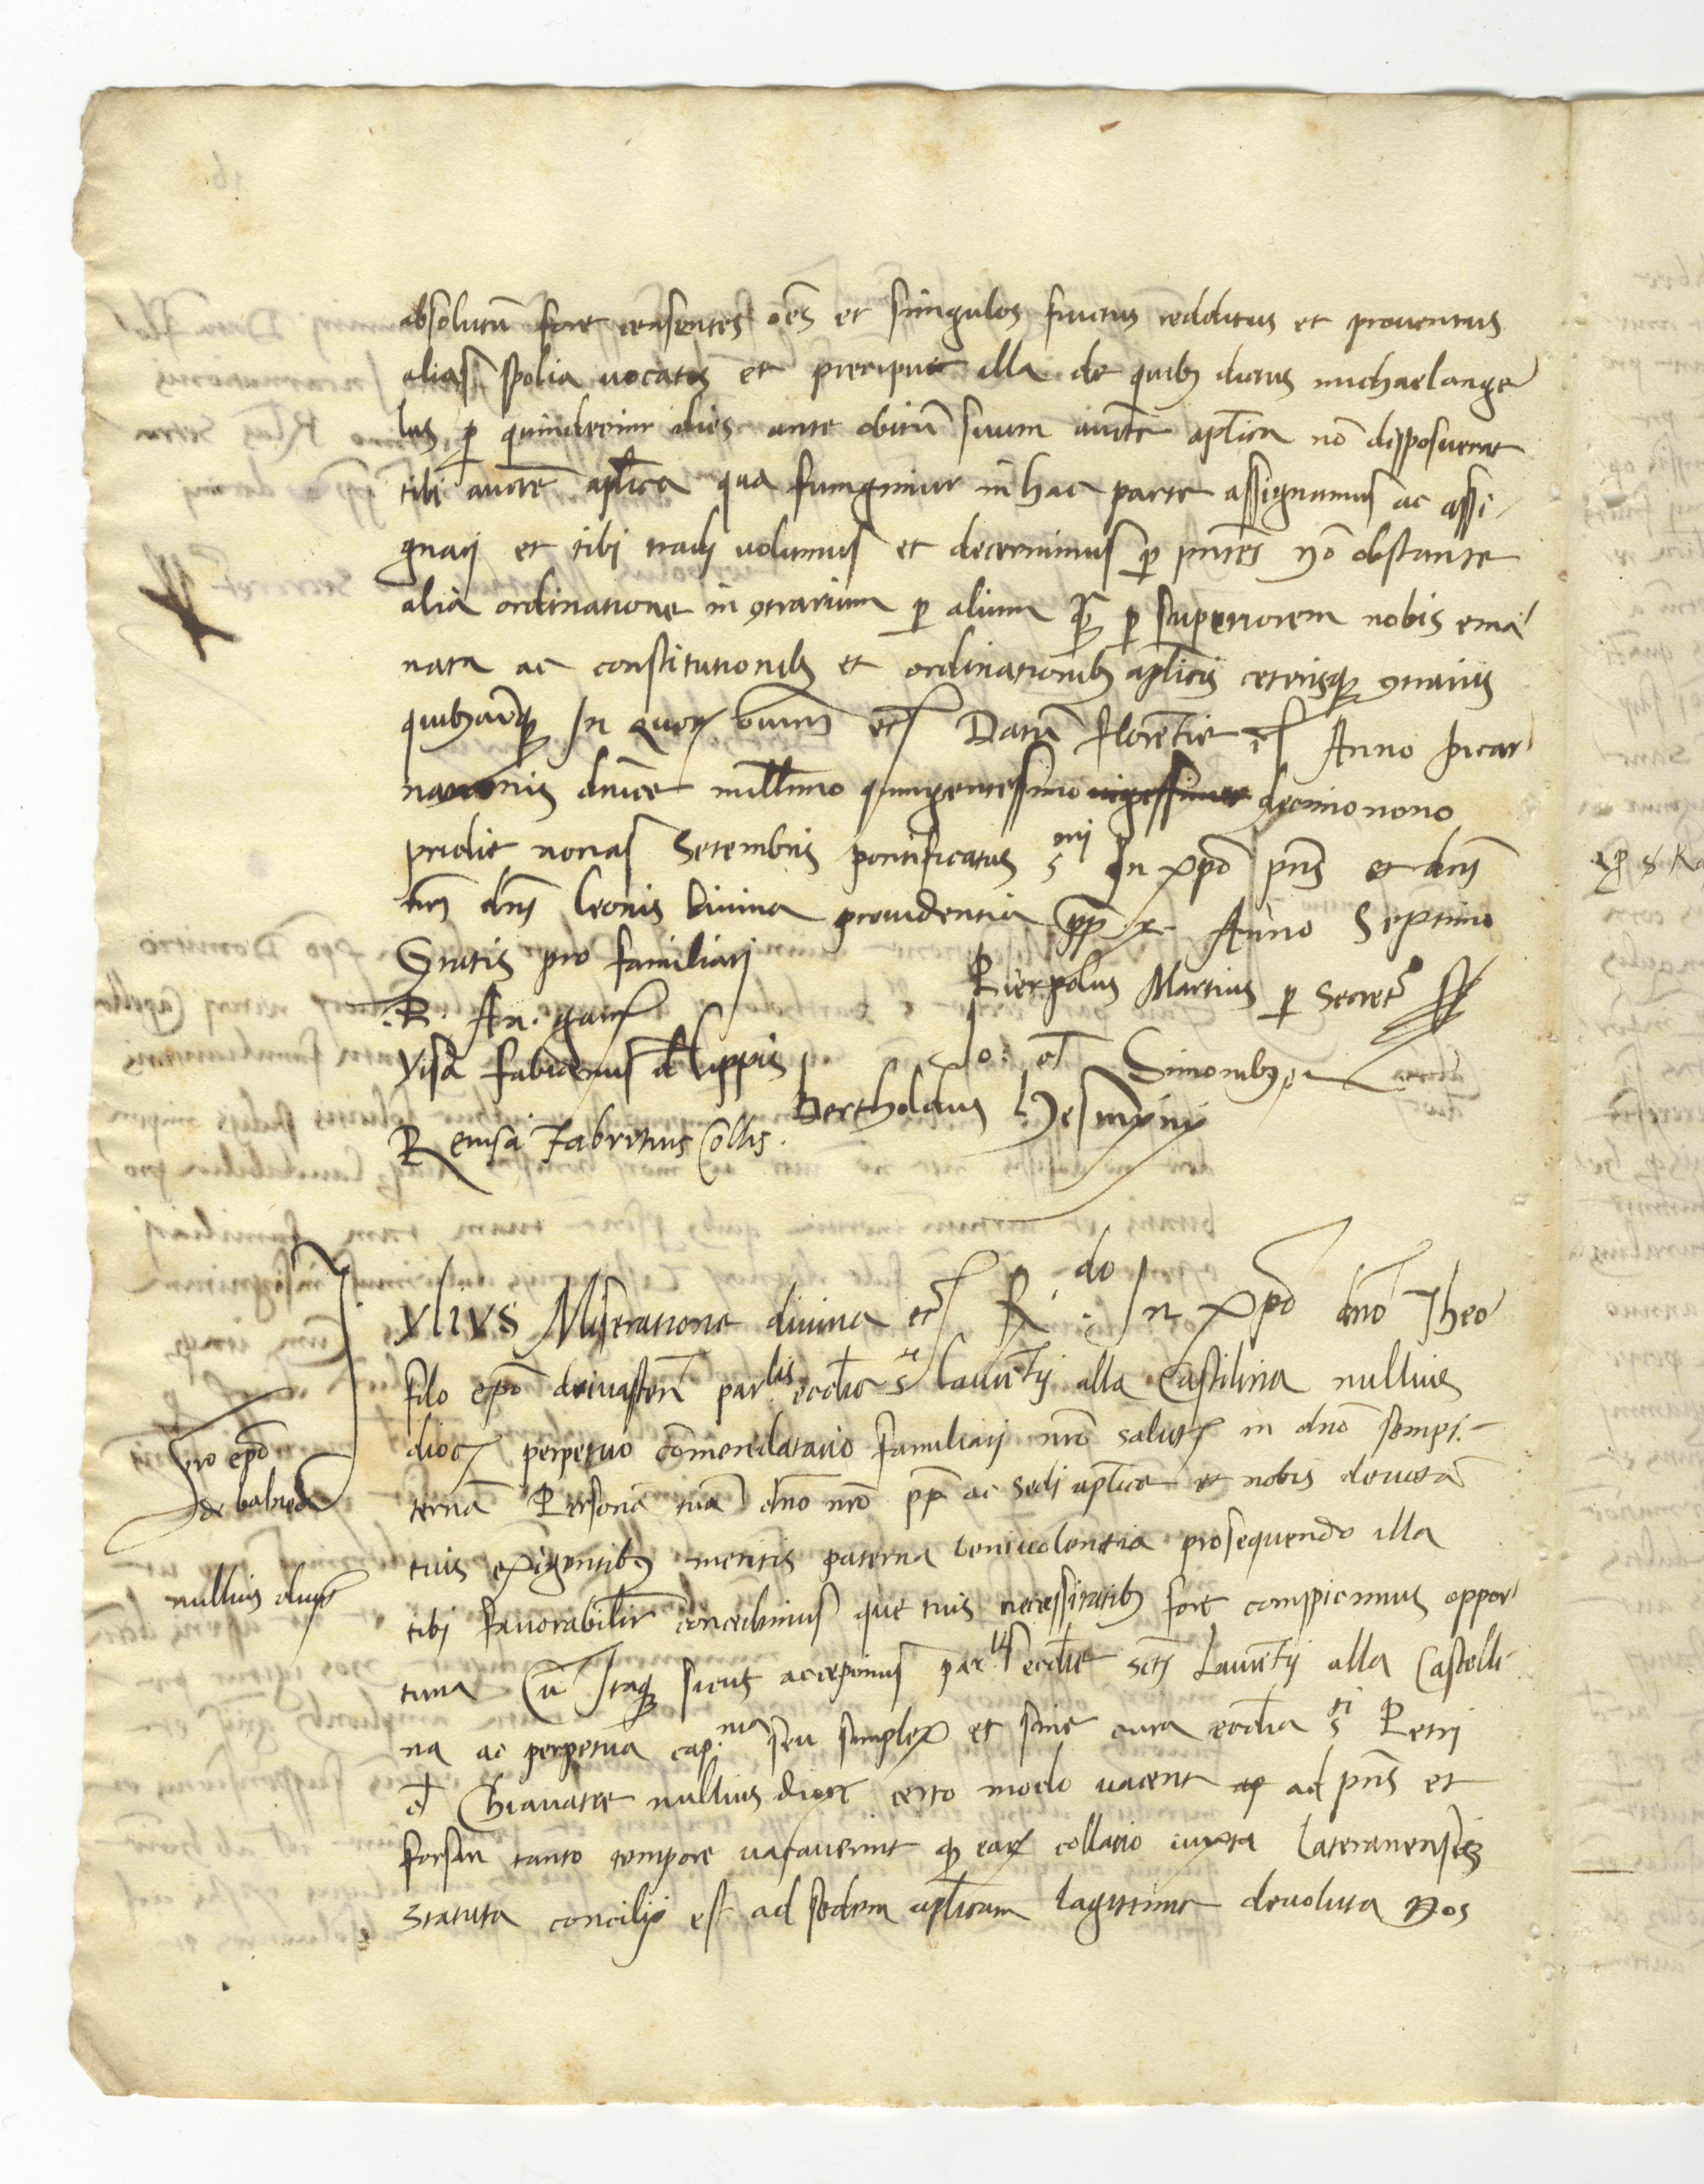 absolutū fore censentes oēs et singulos fructus redditus et prouentus
alias spolia uocatos et precipue illa de quibus dictus michaelange
lus p quindecim dies ante obitū suum aucte aplica nō disposuerat
tibi aucte aplica qua fungimur in hac parte assignamus ac assi
gnari et tibi tradi uolumus et decernimus p pntes Nō obstante
alia ordinatione in 9trarium p alium q̃ p superiorem nobis ema
nata ac constitutionibus et ordinationibus aplicis ceterisque 9trariis
quibuscunque In quorum omnium etc Datū florentie etc Anno Incar
nationis dnice millmo quingentessimo decimonono
pridie nonas Setembris pontificatus smi In xpo pris et dni
nri dni leonis diuina prouidentia pp x Anno Septimo
Gratis pro familiari
Pierpolus Martius p Secret
R. An. gauf
Jo: el Simonibus
Visa fabianus d lippis
Bertholdus
Reuisa Fabritius Collis.
IVLIVS Miseratione diuina etc R.do In xpo dno Theo
filo epo driuasten parlis ecclie s.ti laurētij alla Castilina nullius
Pro epo de babucō
dioc perpetuo cōmendatario familiari nro salutem in dno sempi
ternā Personā tuā dno nro pp ac sedi aplice et nobis deuotā
tuis exigentibus meritis paterna beniuolentia prosequendo illa
nullius diuc
tibi fauorabiliter concedimus que tuis necessitatibus fore conspicimus oppor
tuna Cū Itaque sicut accepimus par.lis ecclie scti Laurētij alla Castelli
na ac perpetua cap.nia seu simplex et sine cura ecclia s.ti Petri
el Chiauatre nullius dioc certo modo uacent ad pns et
forsan tanto tempore uacauerint q earum collatio iuxta lateranensis
statuta concilij est ad sedem aplicam lagittime deuoluta Nos